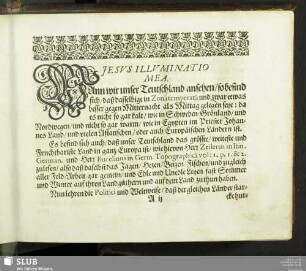 JESVS ILLVMINATIO
MEA.
Wann wir unser Teutschland ansehen/ so befind
sich/ daß dasselbige in Zonâ temperatâ und zwar etwas
besser gegen Mitternacht als Mittag gelegen seye: da
es nicht so gar kalt/ wie in Schweden/ Grünland/ und
Nordwegen/ und nicht so gar warm/ wie in Egypten im Priester Johan-
nes Land/ und vielen Asiatischen/ oder auch Europäischen Ländern ist.
Es befind sich auch/ daß unser Teutschland das größte/ weiteste und
Fruchtbariste Land in gantz Europa ist/ wie hievon Herr Zeilerus in Itin.
German. und Herr Bucelinus in Germ. Topographic. vol: 1. p. 1. & 2.
zulesen/ also daß daselbst das Jagen/ Hetzen/ Baizen/ Fischen/ und zugleich
aller Feld-Arbeit gar gemein/ und Edle und Unedle Leuth fast Sommer
und Winter auf ihren Landgütern und auf dem Land zuthun haben.
Nun lehren die Politici und Weltweise/ daß der gleichen Länder star-
A ij
SLUB
Wir führen Wissen.